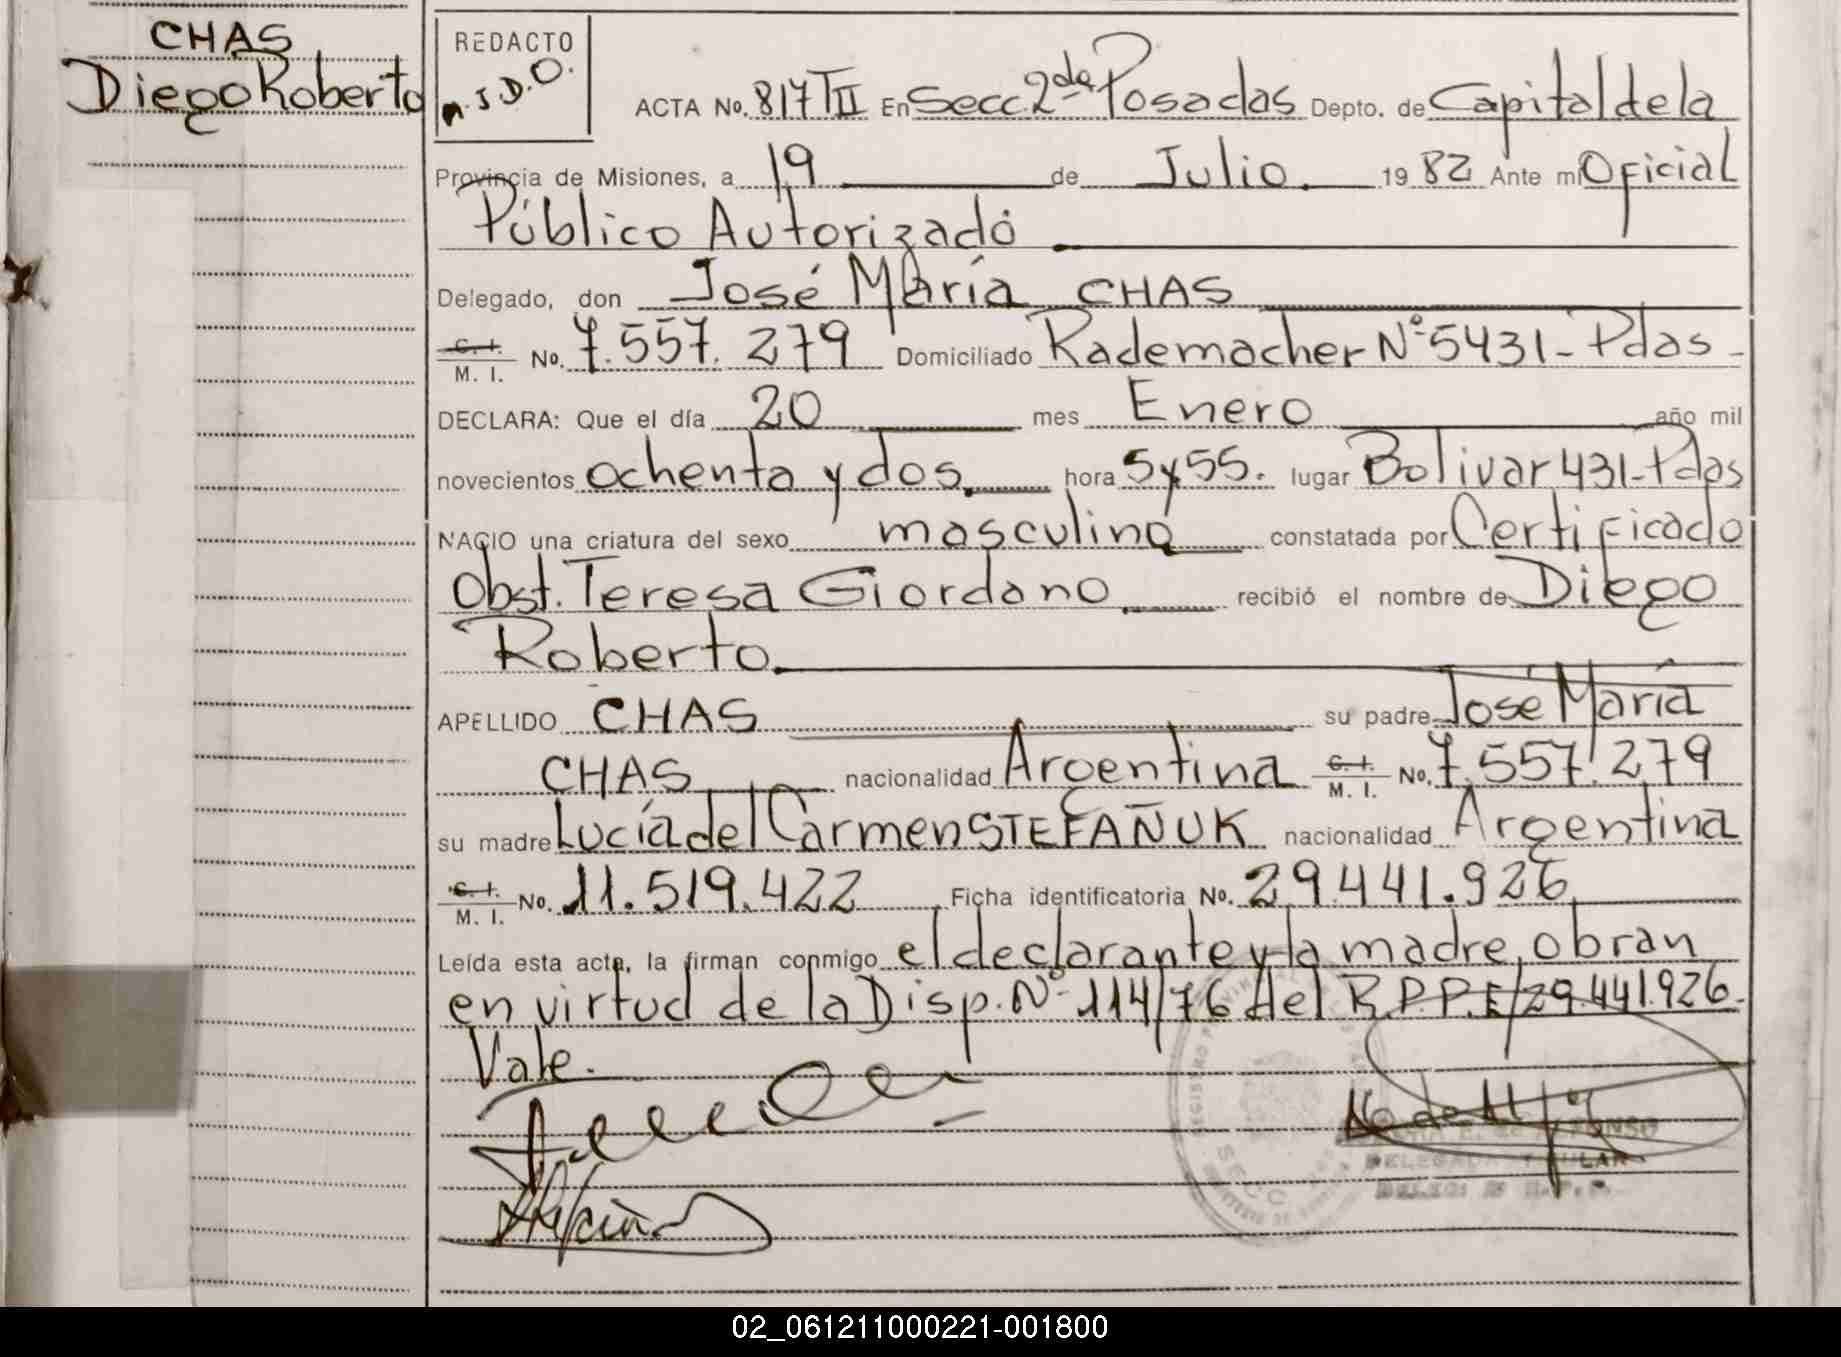 CHAS
Diego Roberto
REDACTO
M.J.D.O.
ACTA No. 817 TII En Secc 2da Posadas Depto. de Capital de la
Provincia de Misiones, a 19 de Julio 19 82 Ante mi Oficial
Público Autorizado
Delegado, don José María CHAS
C. I. M. I. No. 7.557.279 Domiciliado Rademacher Nº 5431 - Pdas -
DECLARA: Que el día 20 mes Enero año mil
novecientos ochenta y dos hora 5 y 55. lugar Bolivar 431 - Pdas
NACIO una criatura del sexo masculino constatada por Certificado
Obst. Teresa Giordano recibió el nombre de Diego
Roberto
APELLIDO CHAS su padre José María
CHAS nacionalidad Argentina C. I. M. I. No. 7.557.279
su madre Lucía del Carmen STEFAÑUK nacionalidad Argentina
C. I. M. I. No. 11.519.422 Ficha identificatoria No. 29.441.926
Leída esta acta, la firman conmigo el declarante y la madre, obran
en virtud de la Disp. Nº 114/76 del R.P.P.E/29.441.926.
Vale.
DELEGADA TITULAR
02_061211000221-001800